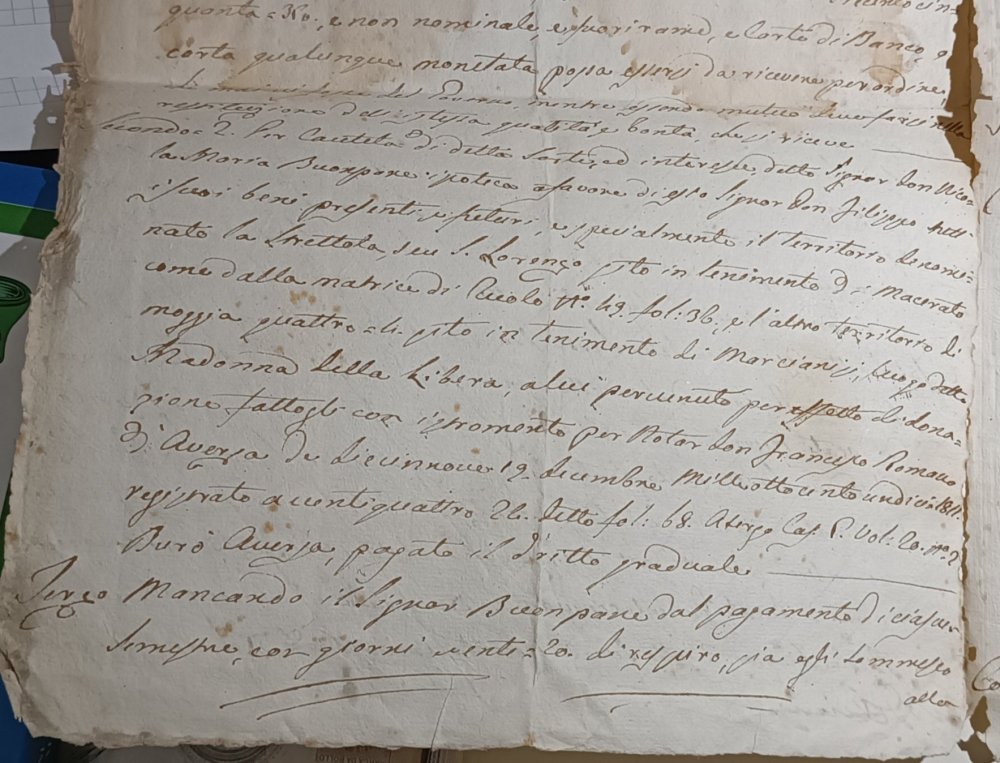 quanta = 50., e non nominale e fuori rame, e carte di Banco, o
carta qualunque monetata possa essersi da ricevere per ordine
del Governo, mentre essendo mutuo deve farsi nella
restituzione dell'istessa qualità e bontà, che si riceve
Secondo = 2. Per cautela di detta sorte, ed interesse detto Signor Don Nico=
la Maria Buonpane ipoteca a favore di esso Signor Don Filippo tutt'
i suoi beni presenti, e futuri, e specialmente il territorio denomi=
nato la Strettola, seu S. Lorenzo sito in tenimento di Macerata
come dalla matrice di ruolo n.° 49. fol: 36, e l'altro territorio di
moggia quattro = 4. sito in tenimento di Marcianisi, luogo detto
Madonna della Libera, a lui pervenuto per effetto di dona=
zione fattogli con istromento per Notar Don Francesco Romano
di Aversa de diecinnove 19. decembre Milleottocento undici 1811.
registrato a ventiquattro 24. detto fol: 68. a tergo Cas. P. Vol: 20. n.° 2
Burò Aversa, pagato il dritto graduale
Terzo Mancando il Signor Buonpane dal pagamento di ciascun
semestre, con giorni venti = 20. di respiro, sia egli sommesso
alla